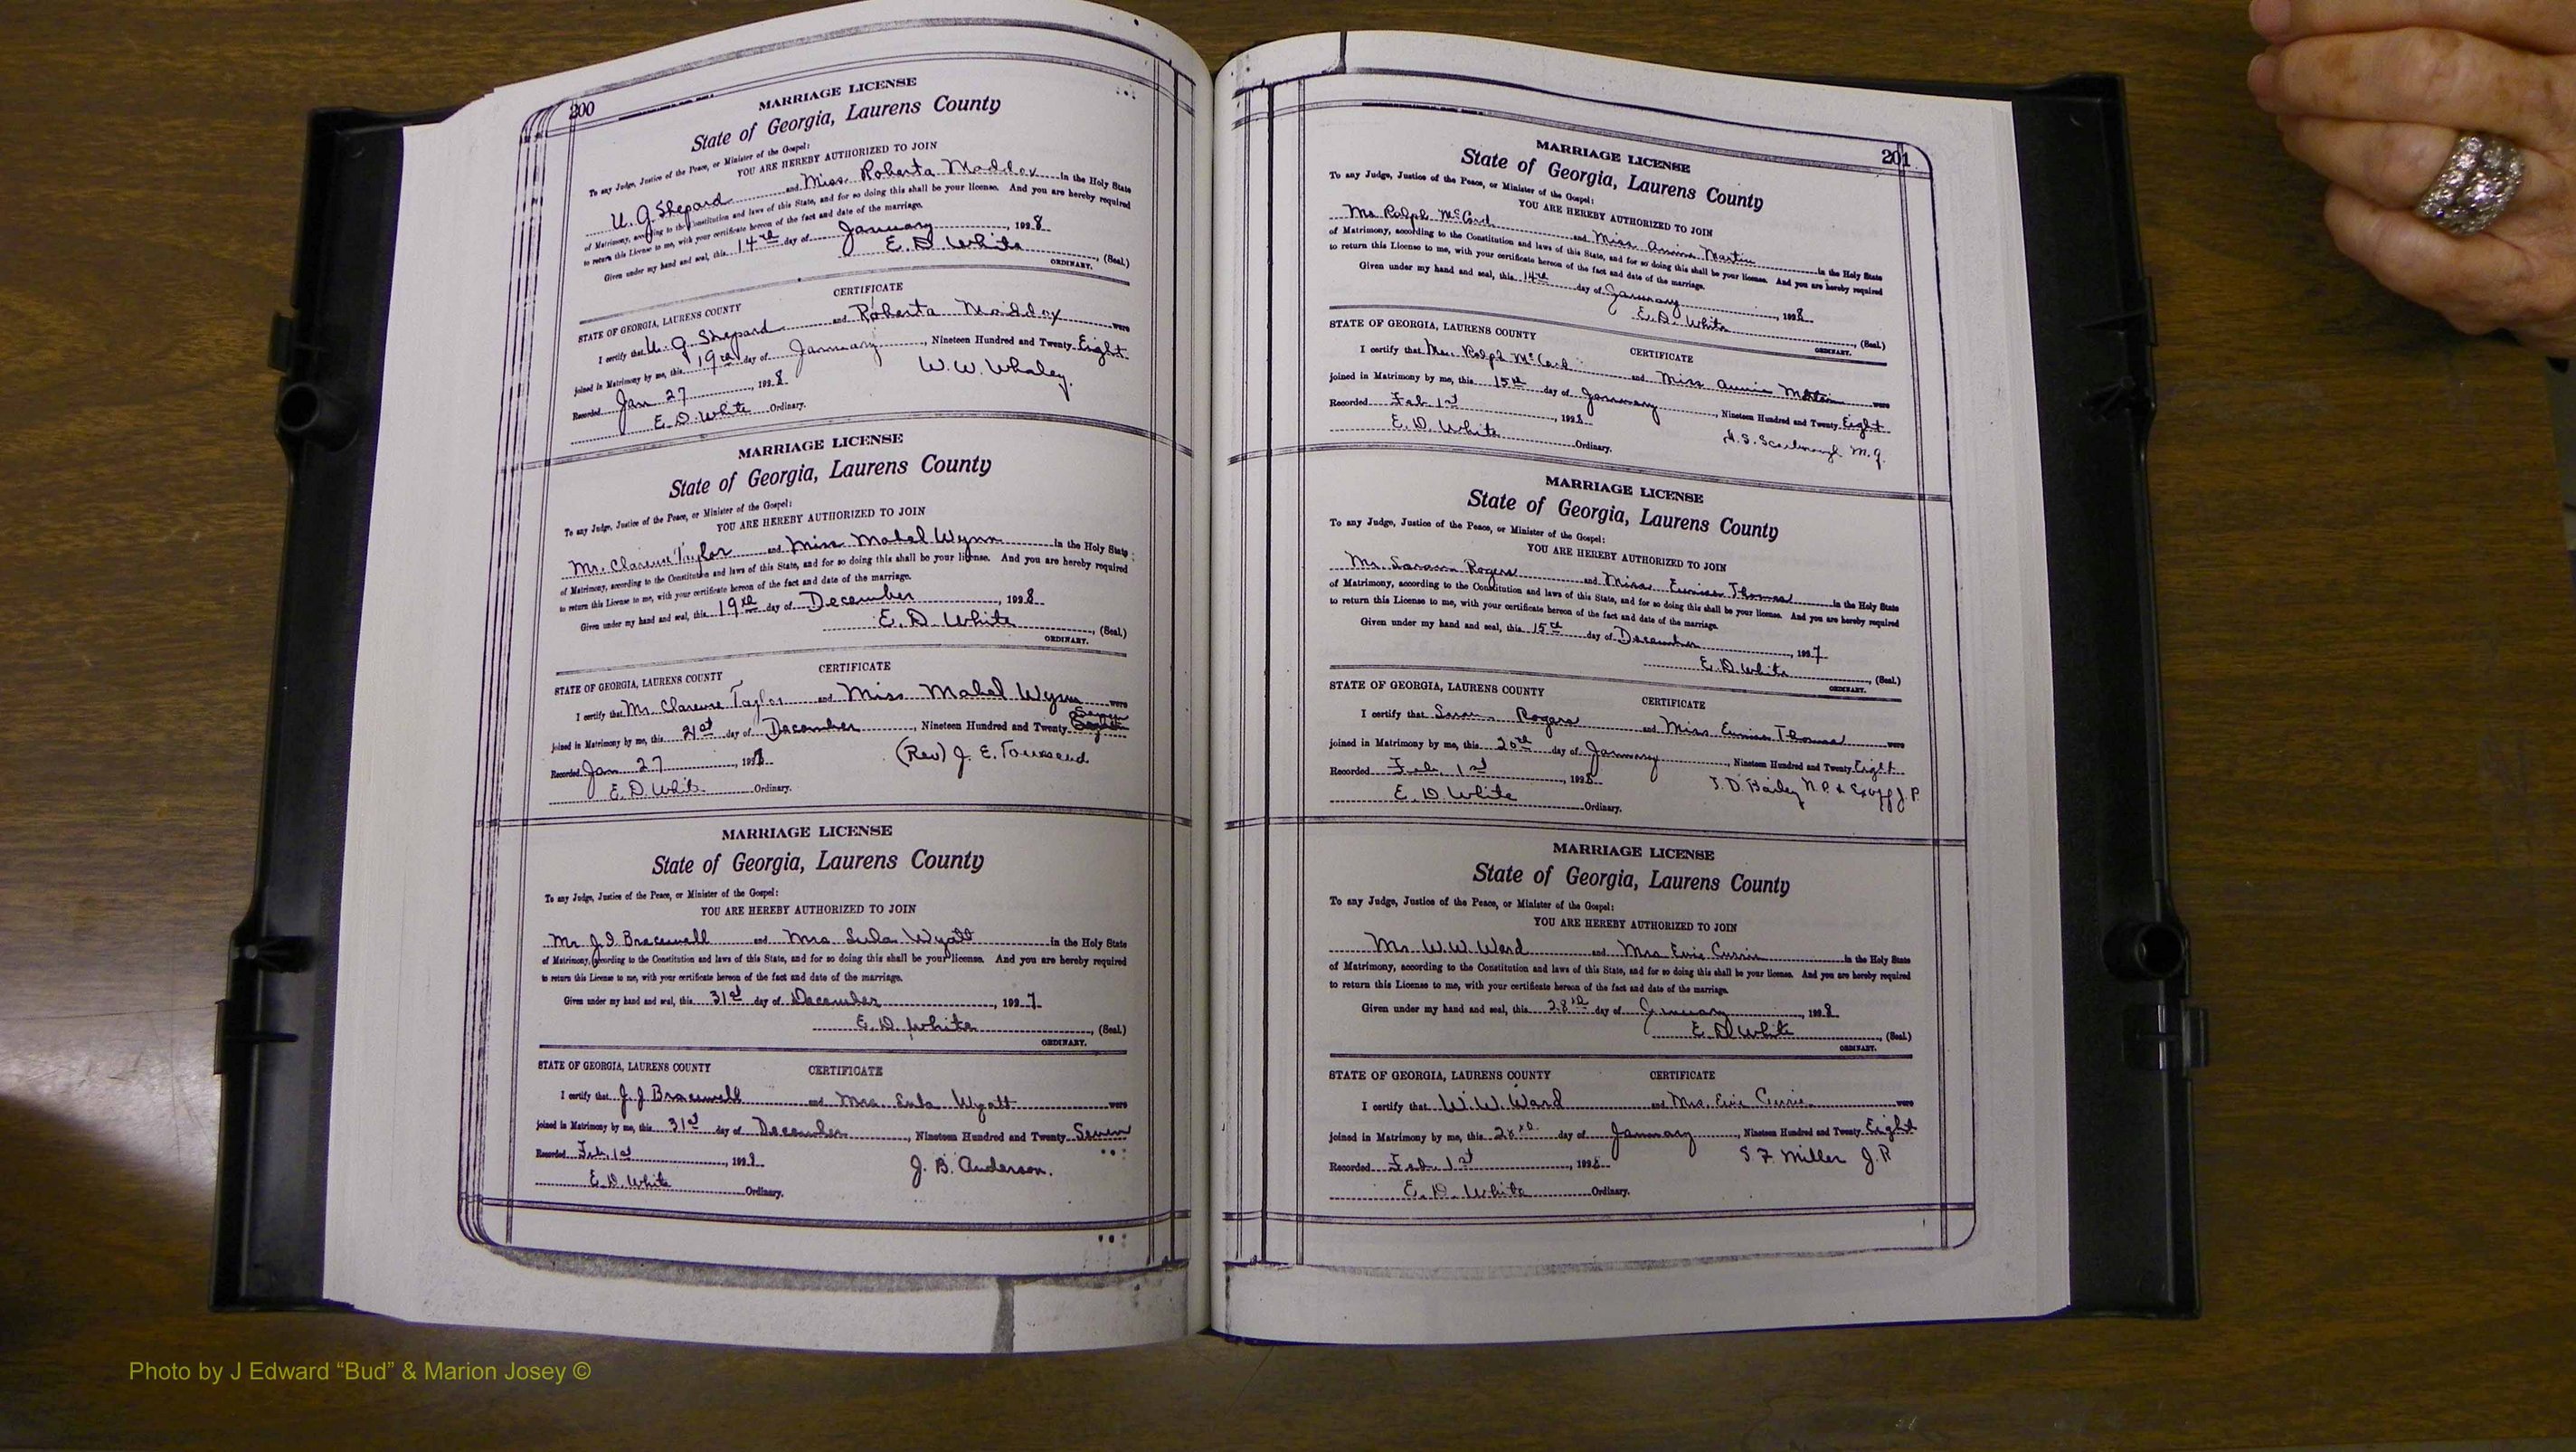 200
MARRIAGE LICENSE
State of Georgia, Laurens County
To any Judge, Justice of the Peace, or Minister of the Gospel:
YOU ARE HEREBY AUTHORIZED TO JOIN
U. G. Shepard and Miss Roberta Maddox in the Holy State
of Matrimony, according to the Constitution and laws of this State, and for so doing this shall be your license. And you are hereby required
to return this License to me, with your certificate hereon of the fact and date of the marriage.
Given under my hand and seal, this 14th day of January, 1928
E. D. White, (Seal.)
ORDINARY.
CERTIFICATE
STATE OF GEORGIA, LAURENS COUNTY
I certify that U. G. Shepard and Roberta Maddox were
joined in Matrimony by me, this 19th day of January, Nineteen Hundred and Twenty Eight
Recorded Jan 27, 1928 W. W. Whaley.
E. D. White Ordinary.
MARRIAGE LICENSE
State of Georgia, Laurens County
To any Judge, Justice of the Peace, or Minister of the Gospel:
YOU ARE HEREBY AUTHORIZED TO JOIN
Mr. Clarence Taylor and Miss Mabel Wynn in the Holy State
of Matrimony, according to the Constitution and laws of this State, and for so doing this shall be your license. And you are hereby required
to return this License to me, with your certificate hereon of the fact and date of the marriage.
Given under my hand and seal, this 19th day of December, 1928
E. D. White, (Seal.)
ORDINARY.
CERTIFICATE
STATE OF GEORGIA, LAURENS COUNTY
I certify that Mr. Clarence Taylor and Miss Mabel Wynn were
joined in Matrimony by me, this 21st day of December, Nineteen Hundred and Twenty Seven
Recorded Jan 27, 1928 (Rev) J. E. Townsend.
E. D. White Ordinary.
MARRIAGE LICENSE
State of Georgia, Laurens County
To any Judge, Justice of the Peace, or Minister of the Gospel:
YOU ARE HEREBY AUTHORIZED TO JOIN
Mr J. J. Bracewell and Mrs Lula Wyatt in the Holy State
of Matrimony, according to the Constitution and laws of this State, and for so doing this shall be your license. And you are hereby required
to return this License to me, with your certificate hereon of the fact and date of the marriage.
Given under my hand and seal, this 31st day of December, 1927
E. D. White, (Seal.)
ORDINARY.
STATE OF GEORGIA, LAURENS COUNTY CERTIFICATE
I certify that J. J. Bracewell and Mrs Lula Wyatt were
joined in Matrimony by me, this 31st day of December, Nineteen Hundred and Twenty Seven
Recorded Feb. 1st, 1928 J. B. Anderson.
E. D. White Ordinary.
201
MARRIAGE LICENSE
State of Georgia, Laurens County
To any Judge, Justice of the Peace, or Minister of the Gospel:
YOU ARE HEREBY AUTHORIZED TO JOIN
Mr Ralph McCord and Miss Annie Martin in the Holy State
of Matrimony, according to the Constitution and laws of this State, and for so doing this shall be your license. And you are hereby required
to return this License to me, with your certificate hereon of the fact and date of the marriage.
Given under my hand and seal, this 14th day of January, 1928
E. D. White, (Seal.)
ORDINARY.
STATE OF GEORGIA, LAURENS COUNTY CERTIFICATE
I certify that Mr. Ralph McCord and Miss Annie Martin were
joined in Matrimony by me, this 15th day of January, Nineteen Hundred and Twenty Eight
Recorded Feb 1st, 1928 H. S. Scarborough M. G.
E. D. White Ordinary.
MARRIAGE LICENSE
State of Georgia, Laurens County
To any Judge, Justice of the Peace, or Minister of the Gospel:
YOU ARE HEREBY AUTHORIZED TO JOIN
Mr. Rogers and Miss Eunice Thomas in the Holy State
of Matrimony, according to the Constitution and laws of this State, and for so doing this shall be your license. And you are hereby required
to return this License to me, with your certificate hereon of the fact and date of the marriage.
Given under my hand and seal, this 15th day of December, 1927
E. D. White, (Seal.)
ORDINARY.
STATE OF GEORGIA, LAURENS COUNTY CERTIFICATE
I certify that Rogers and Miss Eunice Thomas were
joined in Matrimony by me, this 20th day of January, Nineteen Hundred and Twenty Eight
Recorded Feb 1st, 1928 Bailey N. P. & Exoff J. P.
E. D. White Ordinary.
MARRIAGE LICENSE
State of Georgia, Laurens County
To any Judge, Justice of the Peace, or Minister of the Gospel:
YOU ARE HEREBY AUTHORIZED TO JOIN
Mr W. W. Ward and Mrs Evie Currie in the Holy State
of Matrimony, according to the Constitution and laws of this State, and for so doing this shall be your license. And you are hereby required
to return this License to me, with your certificate hereon of the fact and date of the marriage.
Given under my hand and seal, this 28th day of January, 1928
E. D. White, (Seal.)
ORDINARY.
STATE OF GEORGIA, LAURENS COUNTY CERTIFICATE
I certify that W. W. Ward and Mrs. Evie Currie were
joined in Matrimony by me, this 28th day of January, Nineteen Hundred and Twenty Eight
Recorded Feb. 1st, 1928 S. F. Miller J. P.
E. D. White Ordinary.
Photo by J Edward “Bud” & Marion Josey ©